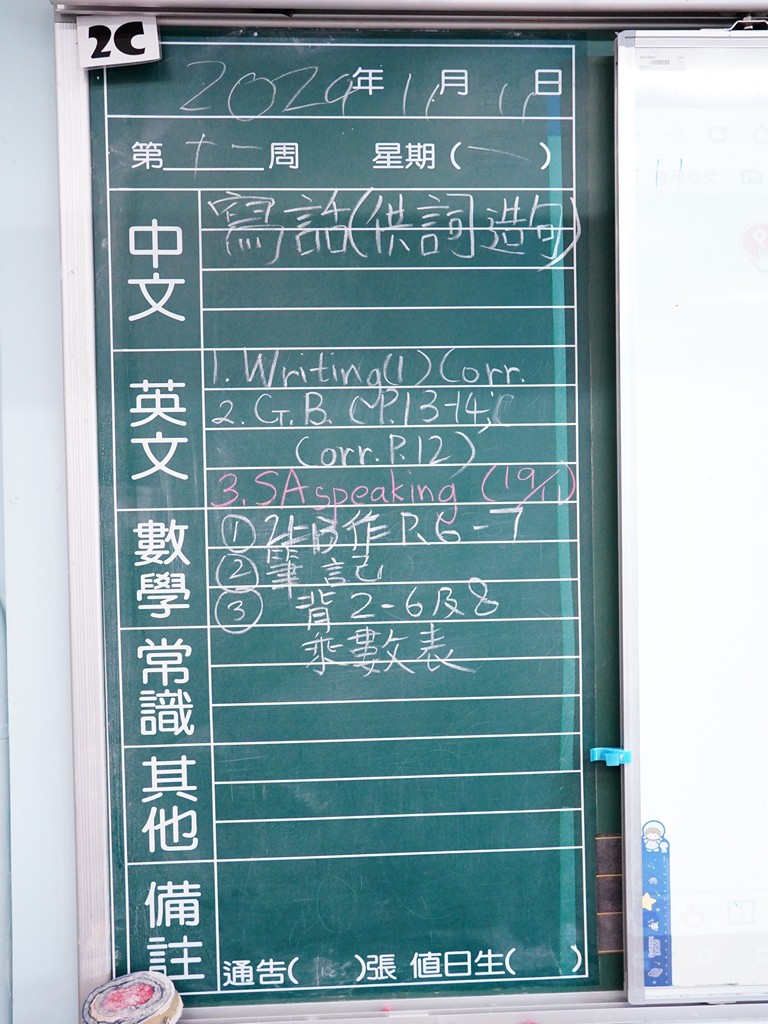 2C
2024年11月11日
第十一周 星期(一)
中文
寫話(供詞造句)
英文
1. Writing(1) Corr.
2. G.B. (P.13-14;
Corr. P.12)
3. SA speaking (19/11)
數學
① 作 P.6-7
② 筆記
③ 背2-6及8
乘數表
常識
其他
備註
通告( )張 值日生( )